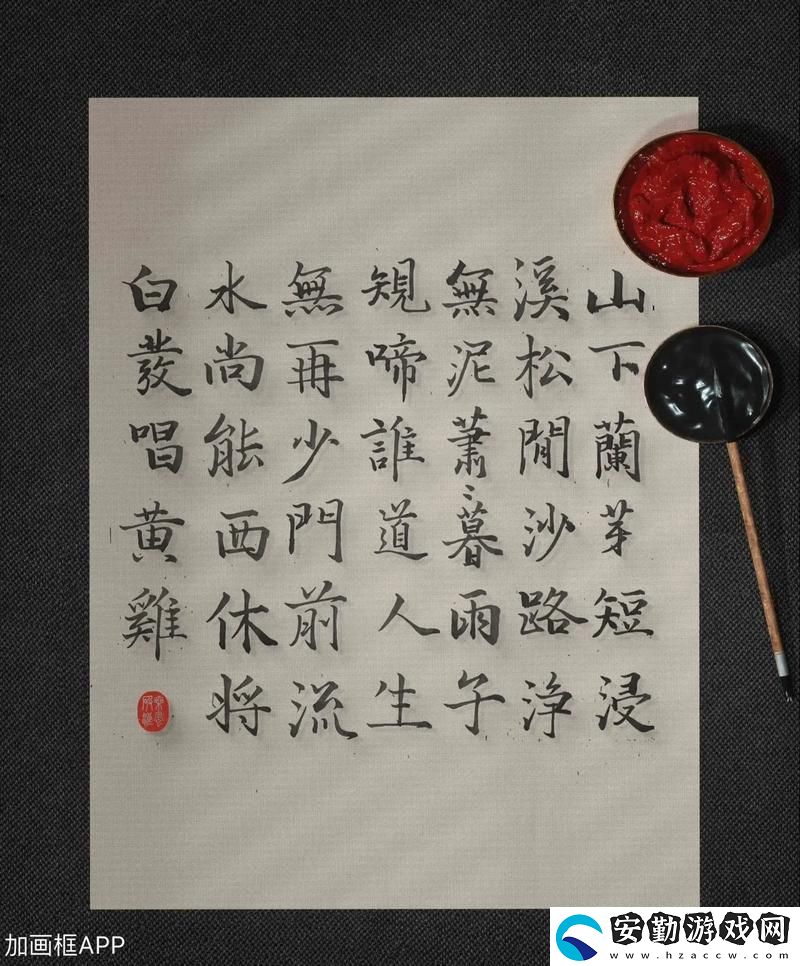 山下蘭芽短浸
溪松閒沙路浄
無泥蕭〻暮雨子
䂓啼誰道人生
無再少門前流
水尚能西休将
白發唱黄雞
加画框APP
安勤游戏网
www.hzaccw.com